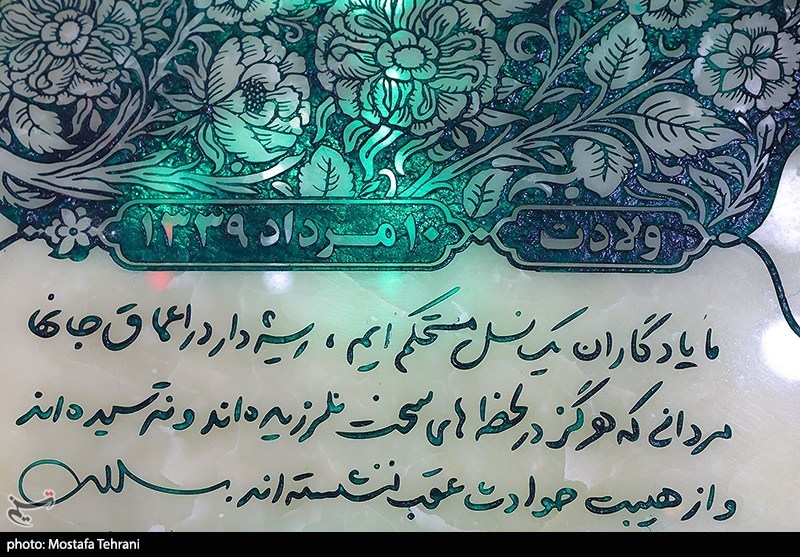 ولادت ۱۰ مرداد ۱۳۳۹
ما یادگاران یک نسل مستحکم ایم، ریشه دار در اعماق جانها
مردانی که هرگز در لحظه های سخت نلرزیده اند و نترسیده اند
و از هیبت حوادث عقب ننشسته اند.
تسنیم
photo: Mostafa Tehrani